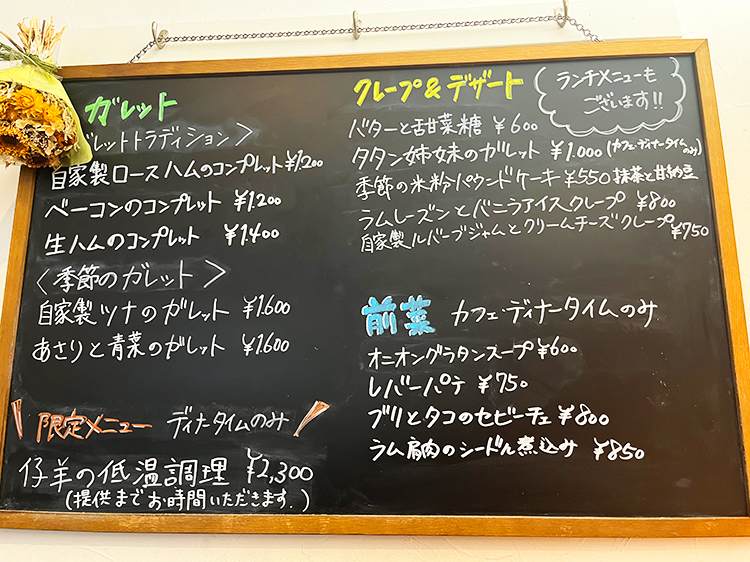 ガレット
レットトラディション〉
自家製ロースハムのコンプレット ¥1.200
ベーコンのコンプレット ¥1.200
生ハムのコンプレット ¥1.400
〈季節のガレット〉
自家製ツナのガレット ¥1.600
あさりと青菜のガレット ¥1.600
限定メニュー ディナータイムのみ
仔羊の低温調理 ¥2,300
(提供までお時間いただきます.)
クレープ&デザート
ランチメニューも
ございます!!
バターと甜菜糖 ¥600
タタン姉妹のガレット ¥1.000 (カフェ・ディナータイムのみ)
季節の米粉パウンドケーキ ¥550 抹茶と甘納豆
ラムレーズンとバニラアイスクレープ ¥800
自家製ルバーブジャムとクリームチーズクレープ ¥750
前菜 カフェ・ディナータイムのみ
オニオングラタンスープ ¥600
レバーパテ ¥750
ブリとタコのセビーチェ ¥800
ラム肩肉のシードル煮込み ¥850